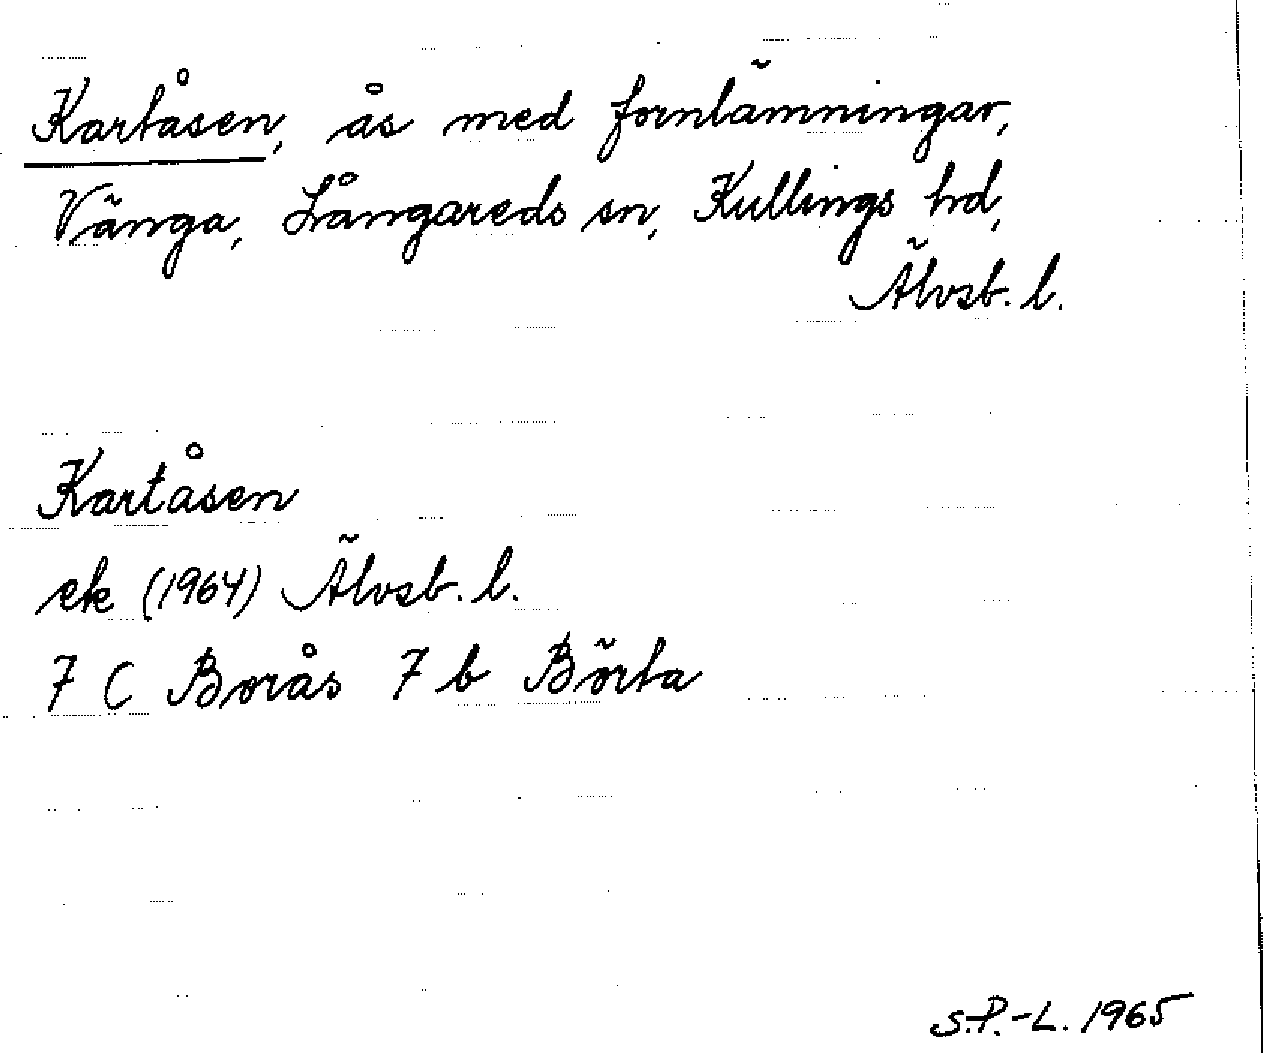 Kartåsen, ås med fornlämningar,
Vänga, Långareds sn, Kullings hd,
Älvsb. l.
Kartåsen
ek (1964) Älvsb. l.
7 C Borås 7 b Börta
S.P.-L. 1965